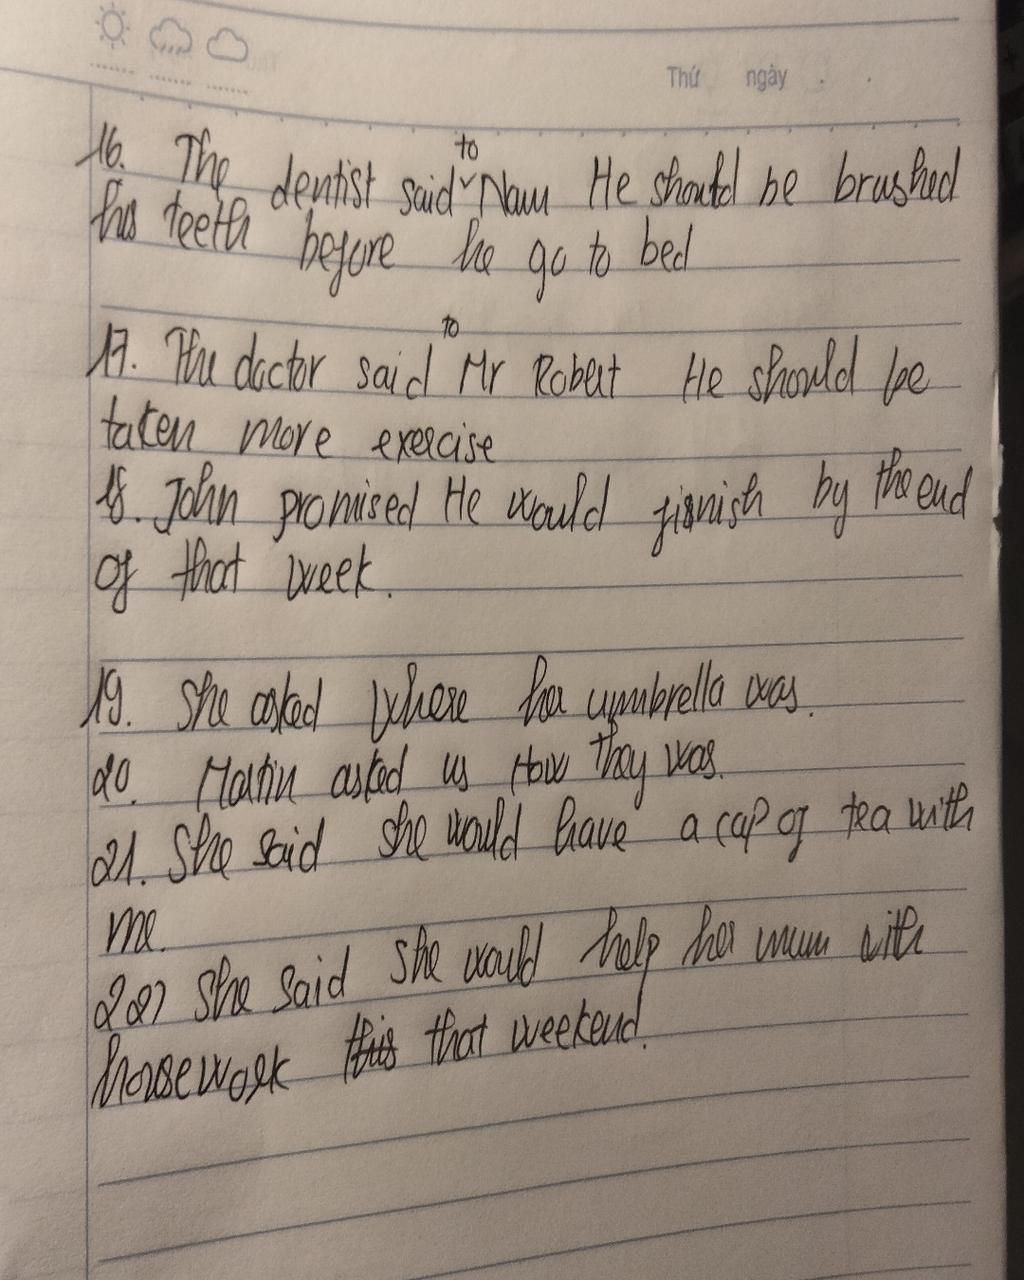 Thứ ngày
16. The dentist said to Nam He should be brushed
his teeth before he go to bed
17. The doctor said to Mr Robert He should be
taken more exercise
18. John promised He would fisnish by the end
of that week.
19. She asked Where her umbrella was.
20. Martin asked us How they was.
21. She said she would have a cap of tea with
me.
22) She said she would help her mum with
housework this that weekend.